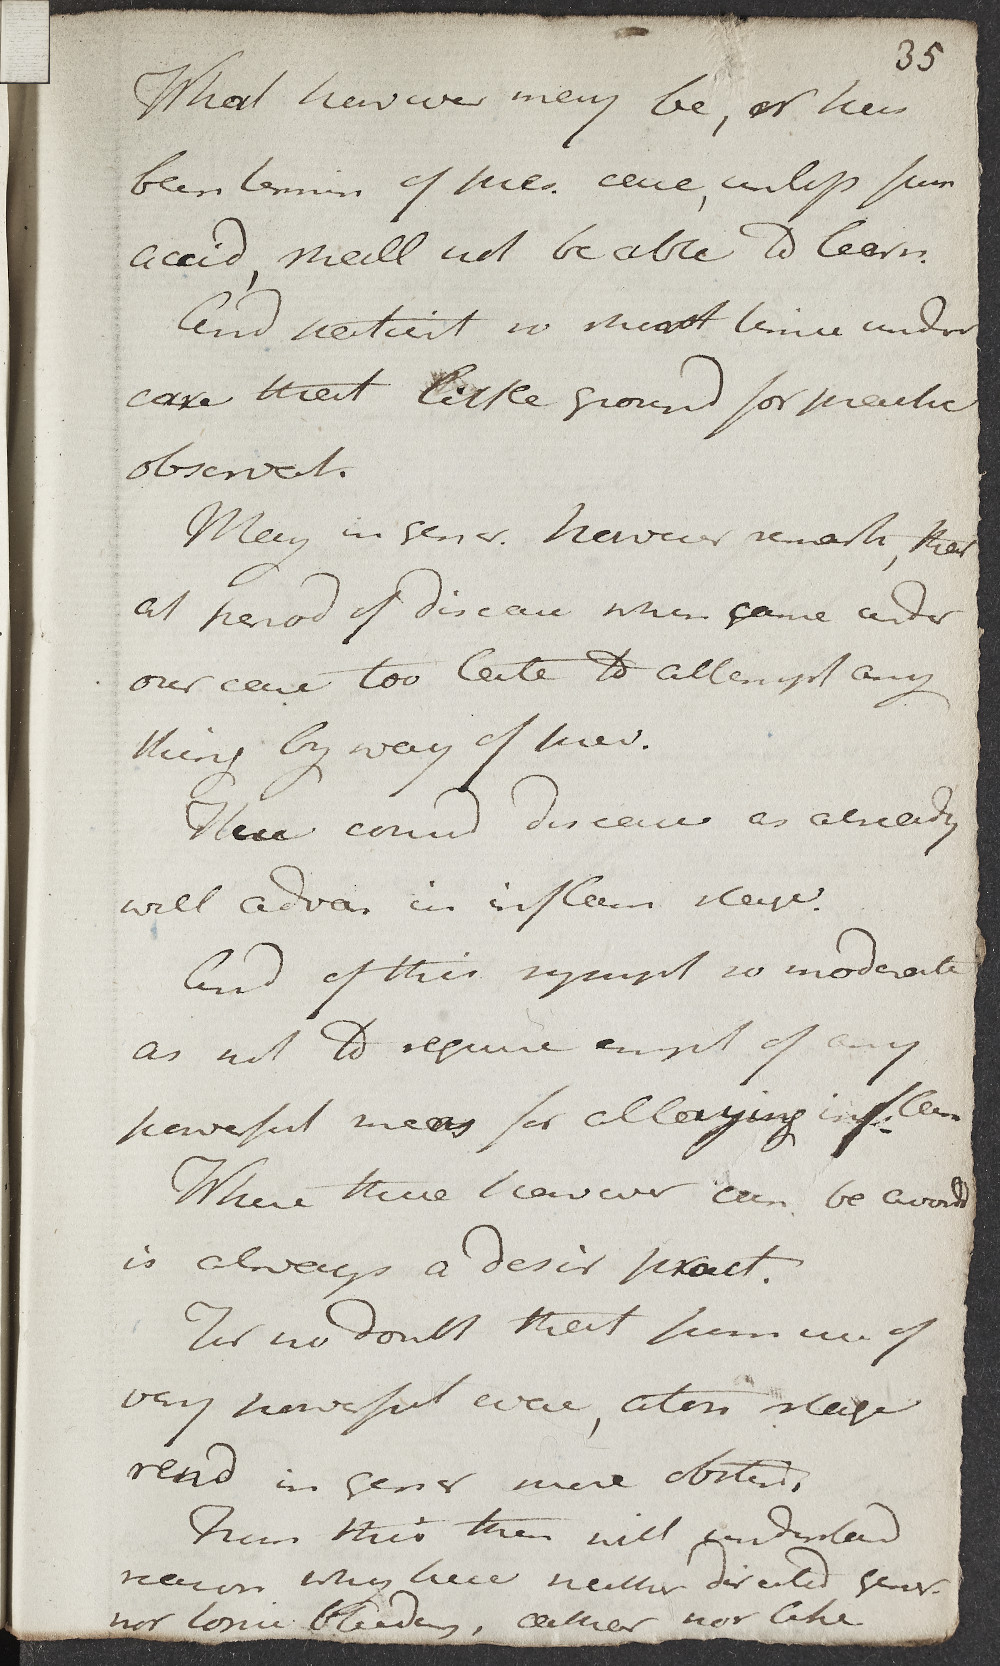 35
What however may be, or has
been termin of pres. case, unless from
accid, shall not be able to learn.
And patient so short time under
care that little ground for practic
observat.
May in gener. however remark, that
at period of disease when came under
our care too late to attempt any
thing by way of prev.
Then consid disease as already
well advan. in inflam stage.
And of this sympt so moderate
as not to require empl of any
powerful means for allaying inflam
Where these however can be avoid
is always a desir pract.
For no doubt that from use of
very powerful evac, atonic stage
rend in gener more obstin.
From this then will understand
reason why have neither directed gener.
nor topic bleeding, cathar nor like